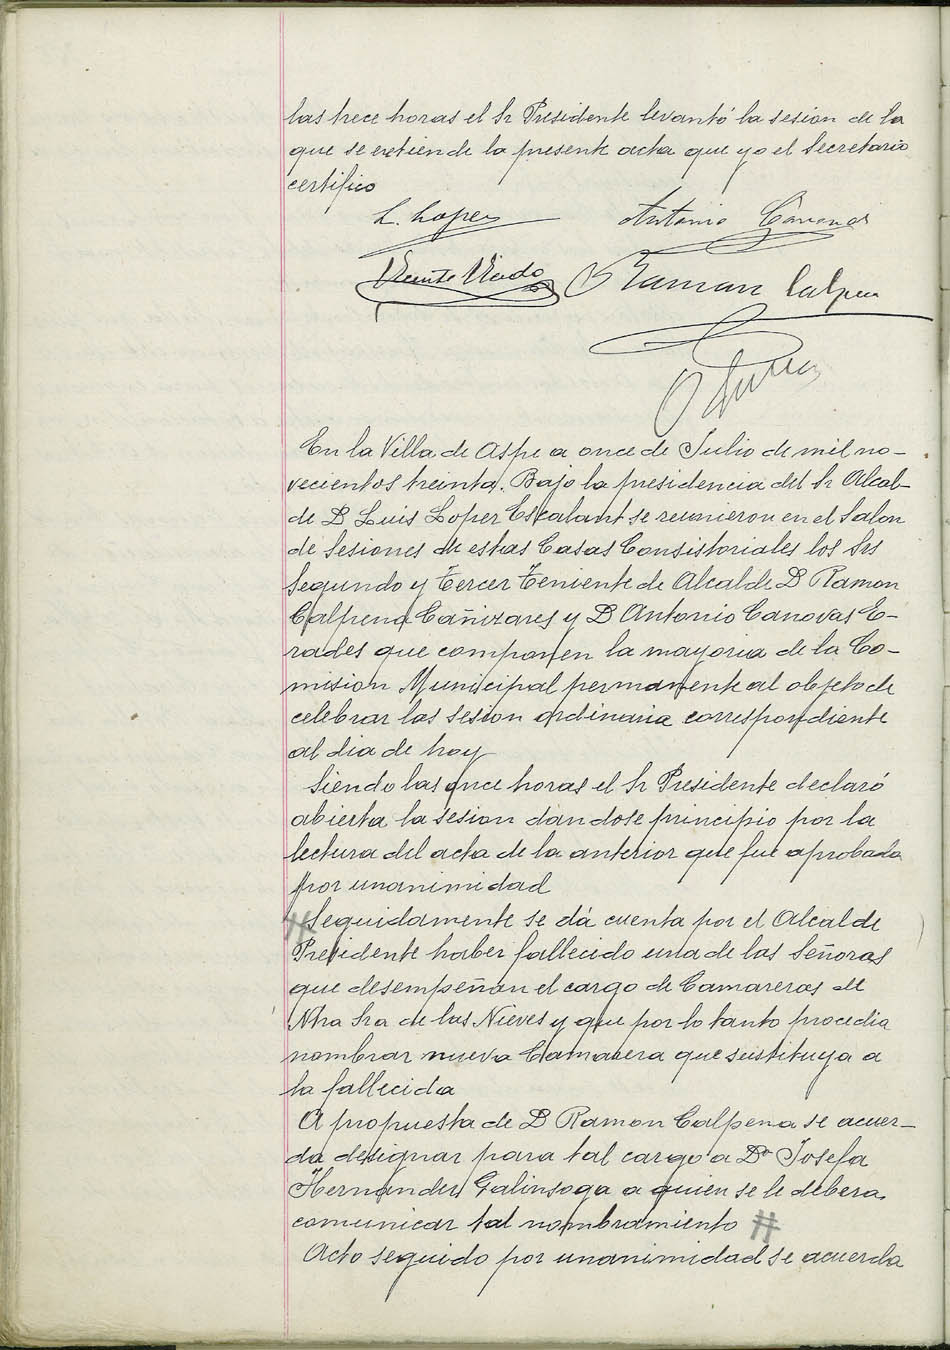 las trece horas el Sr Presidente levantó la sesion de la
que se extiende la presente acta que yo el Secretario
certifico
L. Lopez
Antonio Canovas
Vicente
Ramon Calpena
En la Villa de Aspe a once de Julio de mil no-
vecientos treinta. Bajo la presidencia del Sr Alcal-
de D Luis Lopez Escalant se reunieron en el Salon
de Sesiones de estas Casas Consistoriales los Srs
Segundo y Tercer Teniente de Alcalde D Ramon
Calpena Cañizares y D Antonio Canovas E-
rades que componen la mayoria de la Co-
mision Municipal permanente al objeto de
celebrar las sesion ordinaria correspondiente
al dia de hoy
Siendo las once horas el Sr Presidente declaró
abierta la sesion dandose principio por la
lectura del acta de la anterior que fue aprobada
por unanimidad
# Seguidamente se dá cuenta por el Alcalde
Presidente haber fallecido una de las Señoras
que desempeñan el cargo de Camareras de
Ntra Sra de las Nieves y que por lo tanto procedia
nombrar nueva Camarera que sustituya a
la fallecida
A propuesta de D Ramon Calpena se acuer-
da designar para tal cargo a Dª Josefa
Hernandez Galinsoga a quien se le debera
comunicar tal nombramiento #
Acto seguido por unanimidad se acuerda